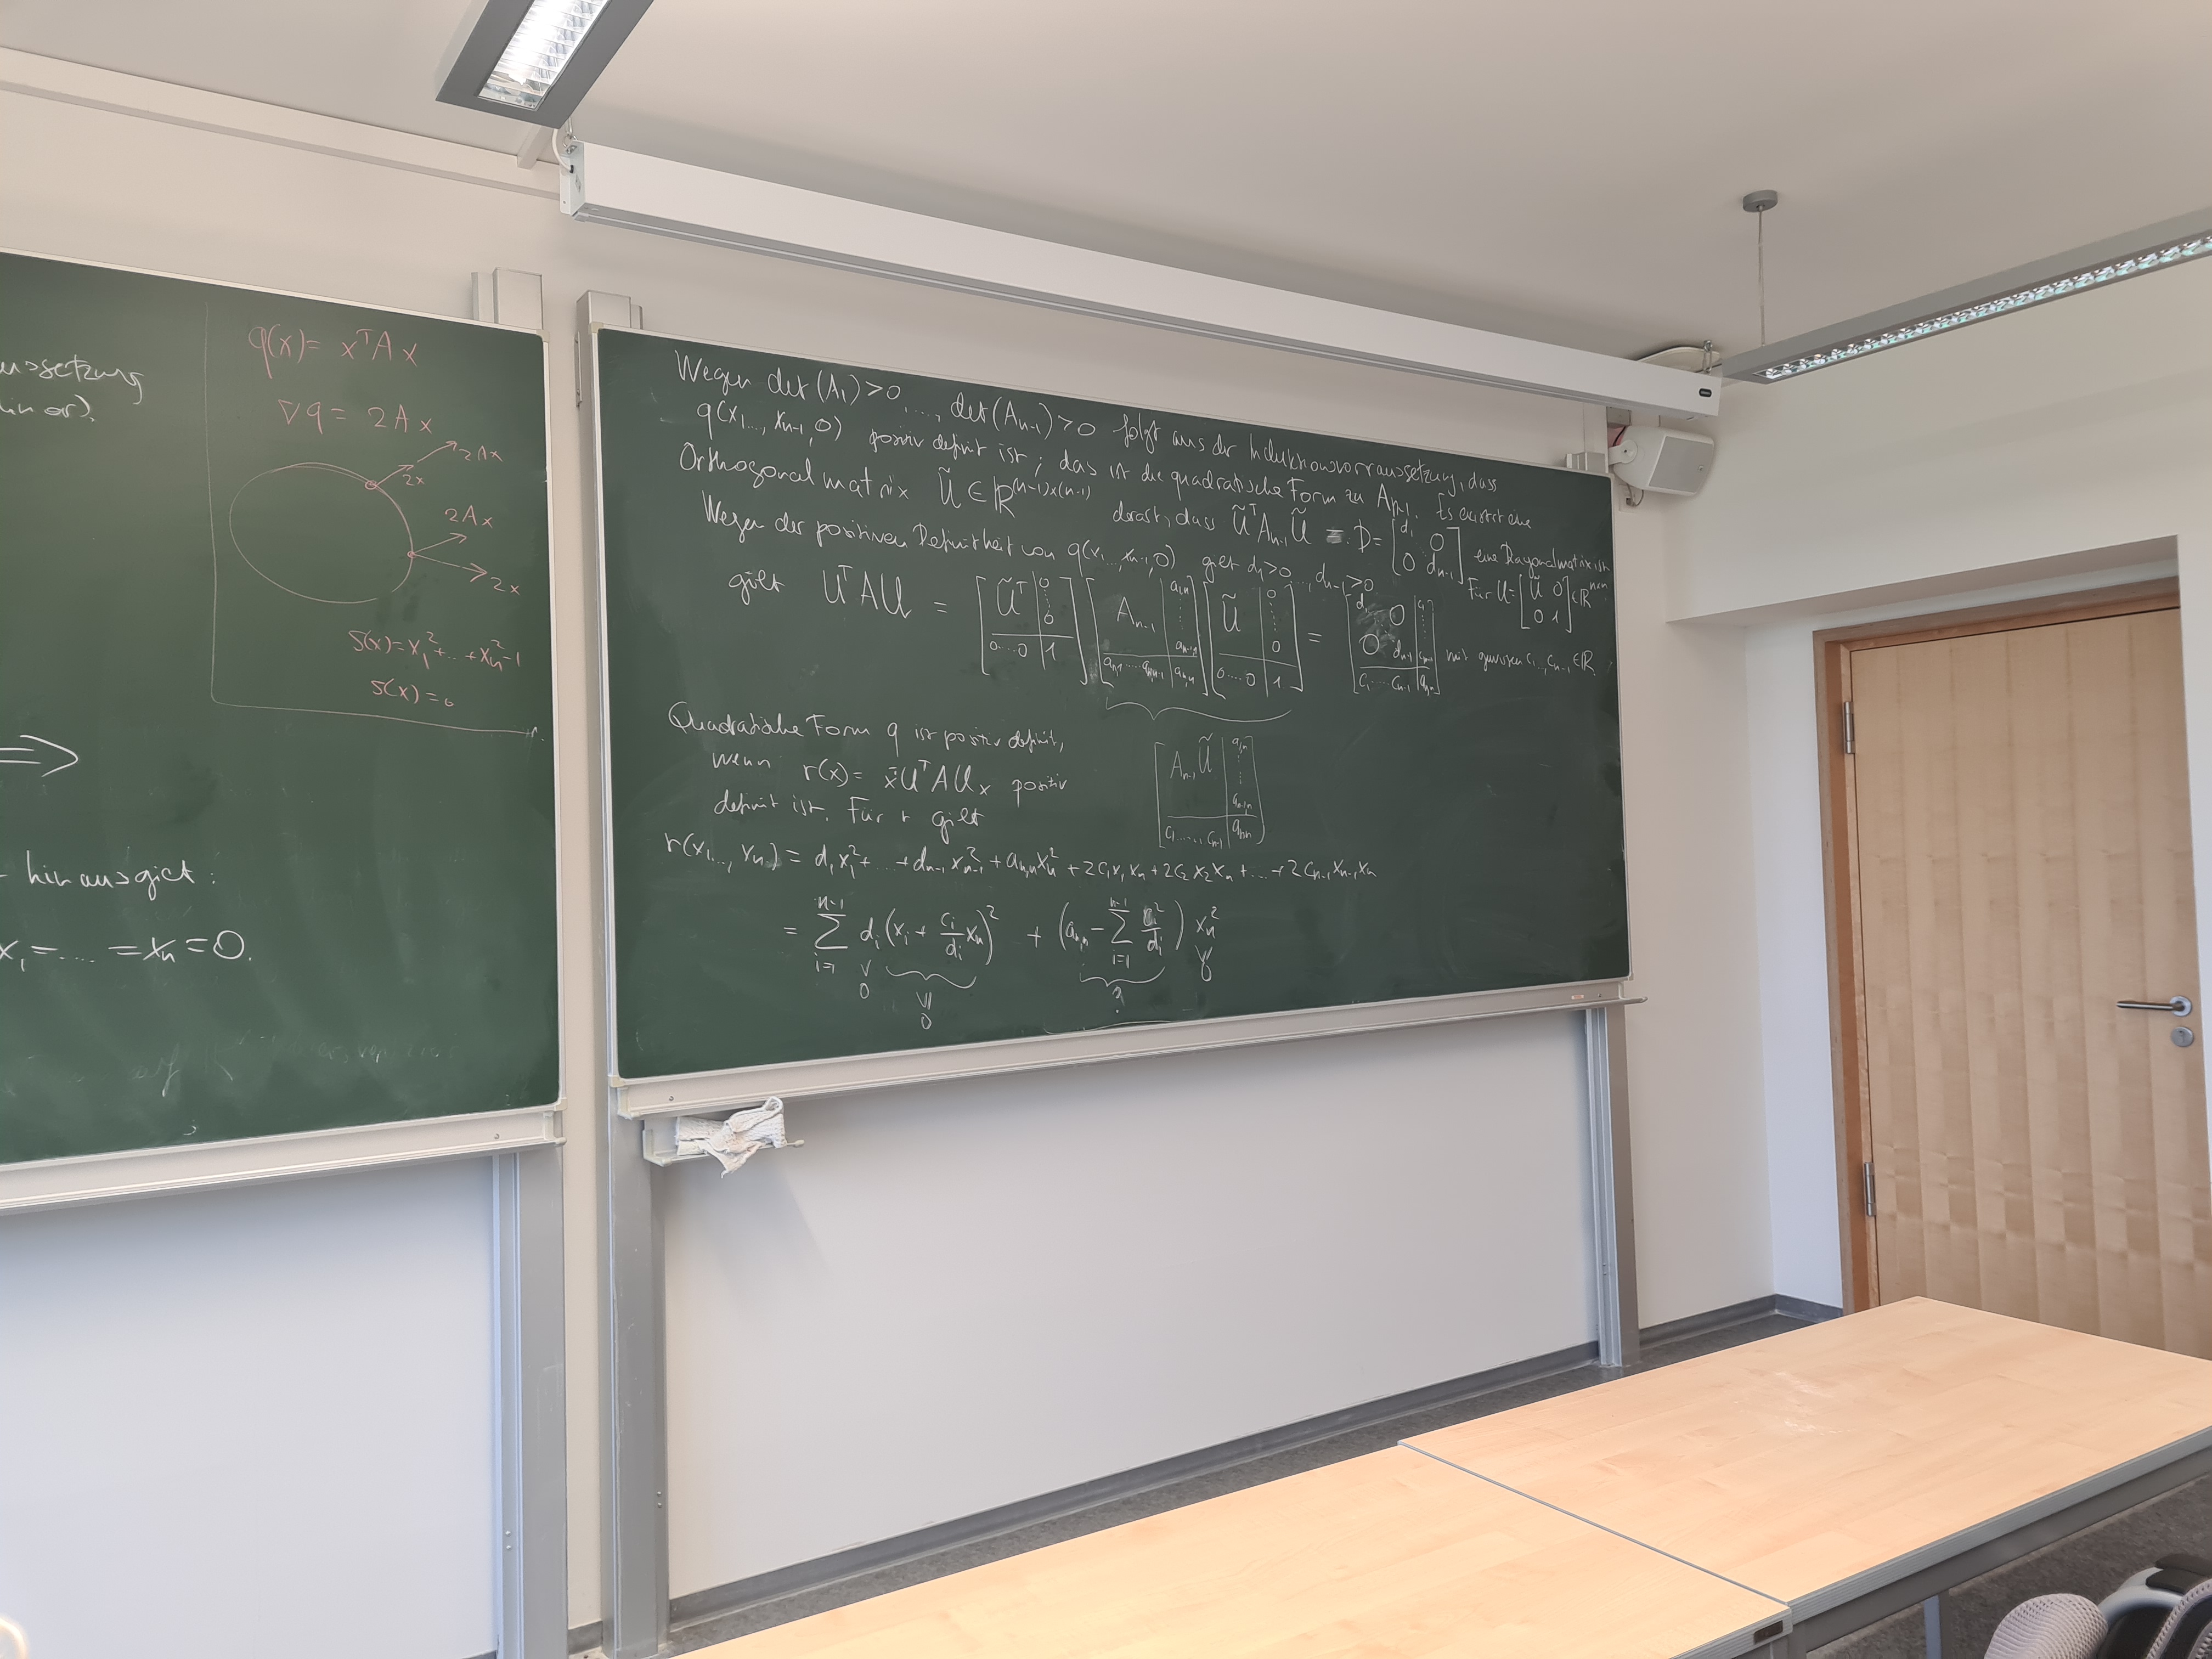 ussetzung
q(x) = xᵀAx
∇q = 2Ax
2Ax
2x
2Ax
2x
S(x) = x₁² + ... + xₙ² - 1
S(x) = 0
⟹
hinausgict:
x₁ = .... = xₙ = 0.
Wegen det(A₁) > 0, ..., det(Aₙ₋₁) > 0 folgt aus der Induktionsvorraussetzung, dass
q(x₁..., xₙ₋₁, 0) positiv definit ist; das ist die quadratische Form zu Aₙ₋₁. Es existiert eine
Orthogonalmatrix Ũ ∈ ℝ⁽ⁿ⁻¹⁾ˣ⁽ⁿ⁻¹⁾ derart, dass ŨᵀAₙ₋₁Ũ =: D = [d₁ 0; 0 dₙ₋₁] eine Diagonalmatrix ist
Wegen der positiven Definitheit von q(x₁..., xₙ₋₁, 0) gilt d₁ > 0, ..., dₙ₋₁ > 0 Für U = [Ũ 0; 0 1] ∈ ℝⁿˣⁿ
gilt UᵀAU = [Ũᵀ | 0 ⋮ 0; 0....0 | 1] [Aₙ₋₁ | a₁,ₙ ⋮ aₙ₋₁,ₙ; aₙ,₁ ..... aₙ,ₙ₋₁ | aₙ,ₙ] [Ũ | 0 ⋮ 0; 0....0 | 1] = [d₁ 0 | c₁ ⋮; 0 dₙ₋₁ | cₙ₋₁; c₁ .... cₙ₋₁ | aₙ,ₙ] mit gewissen c₁,..., cₙ₋₁ ∈ ℝ.
[Aₙ₋₁Ũ | a₁,ₙ ⋮ aₙ₋₁,ₙ; c₁, ...., cₙ₋₁ | aₙ,ₙ]
Quadratische Form q ist positiv definit,
wenn r(x) = xᵀUᵀAUx positiv
definit ist. Für r gilt
r(x₁..., xₙ) = d₁x₁² + ... + dₙ₋₁xₙ₋₁² + aₙ,ₙxₙ² + 2c₁x₁xₙ + 2c₂x₂xₙ + ... + 2cₙ₋₁xₙ₋₁xₙ
= ∑ᵢ₌₁ⁿ⁻¹ dᵢ(xᵢ + cᵢ/dᵢ xₙ)² + (aₙ,ₙ - ∑ᵢ₌₁ⁿ⁻¹ cᵢ²/dᵢ) xₙ²
∨ 0
∨| 0
?